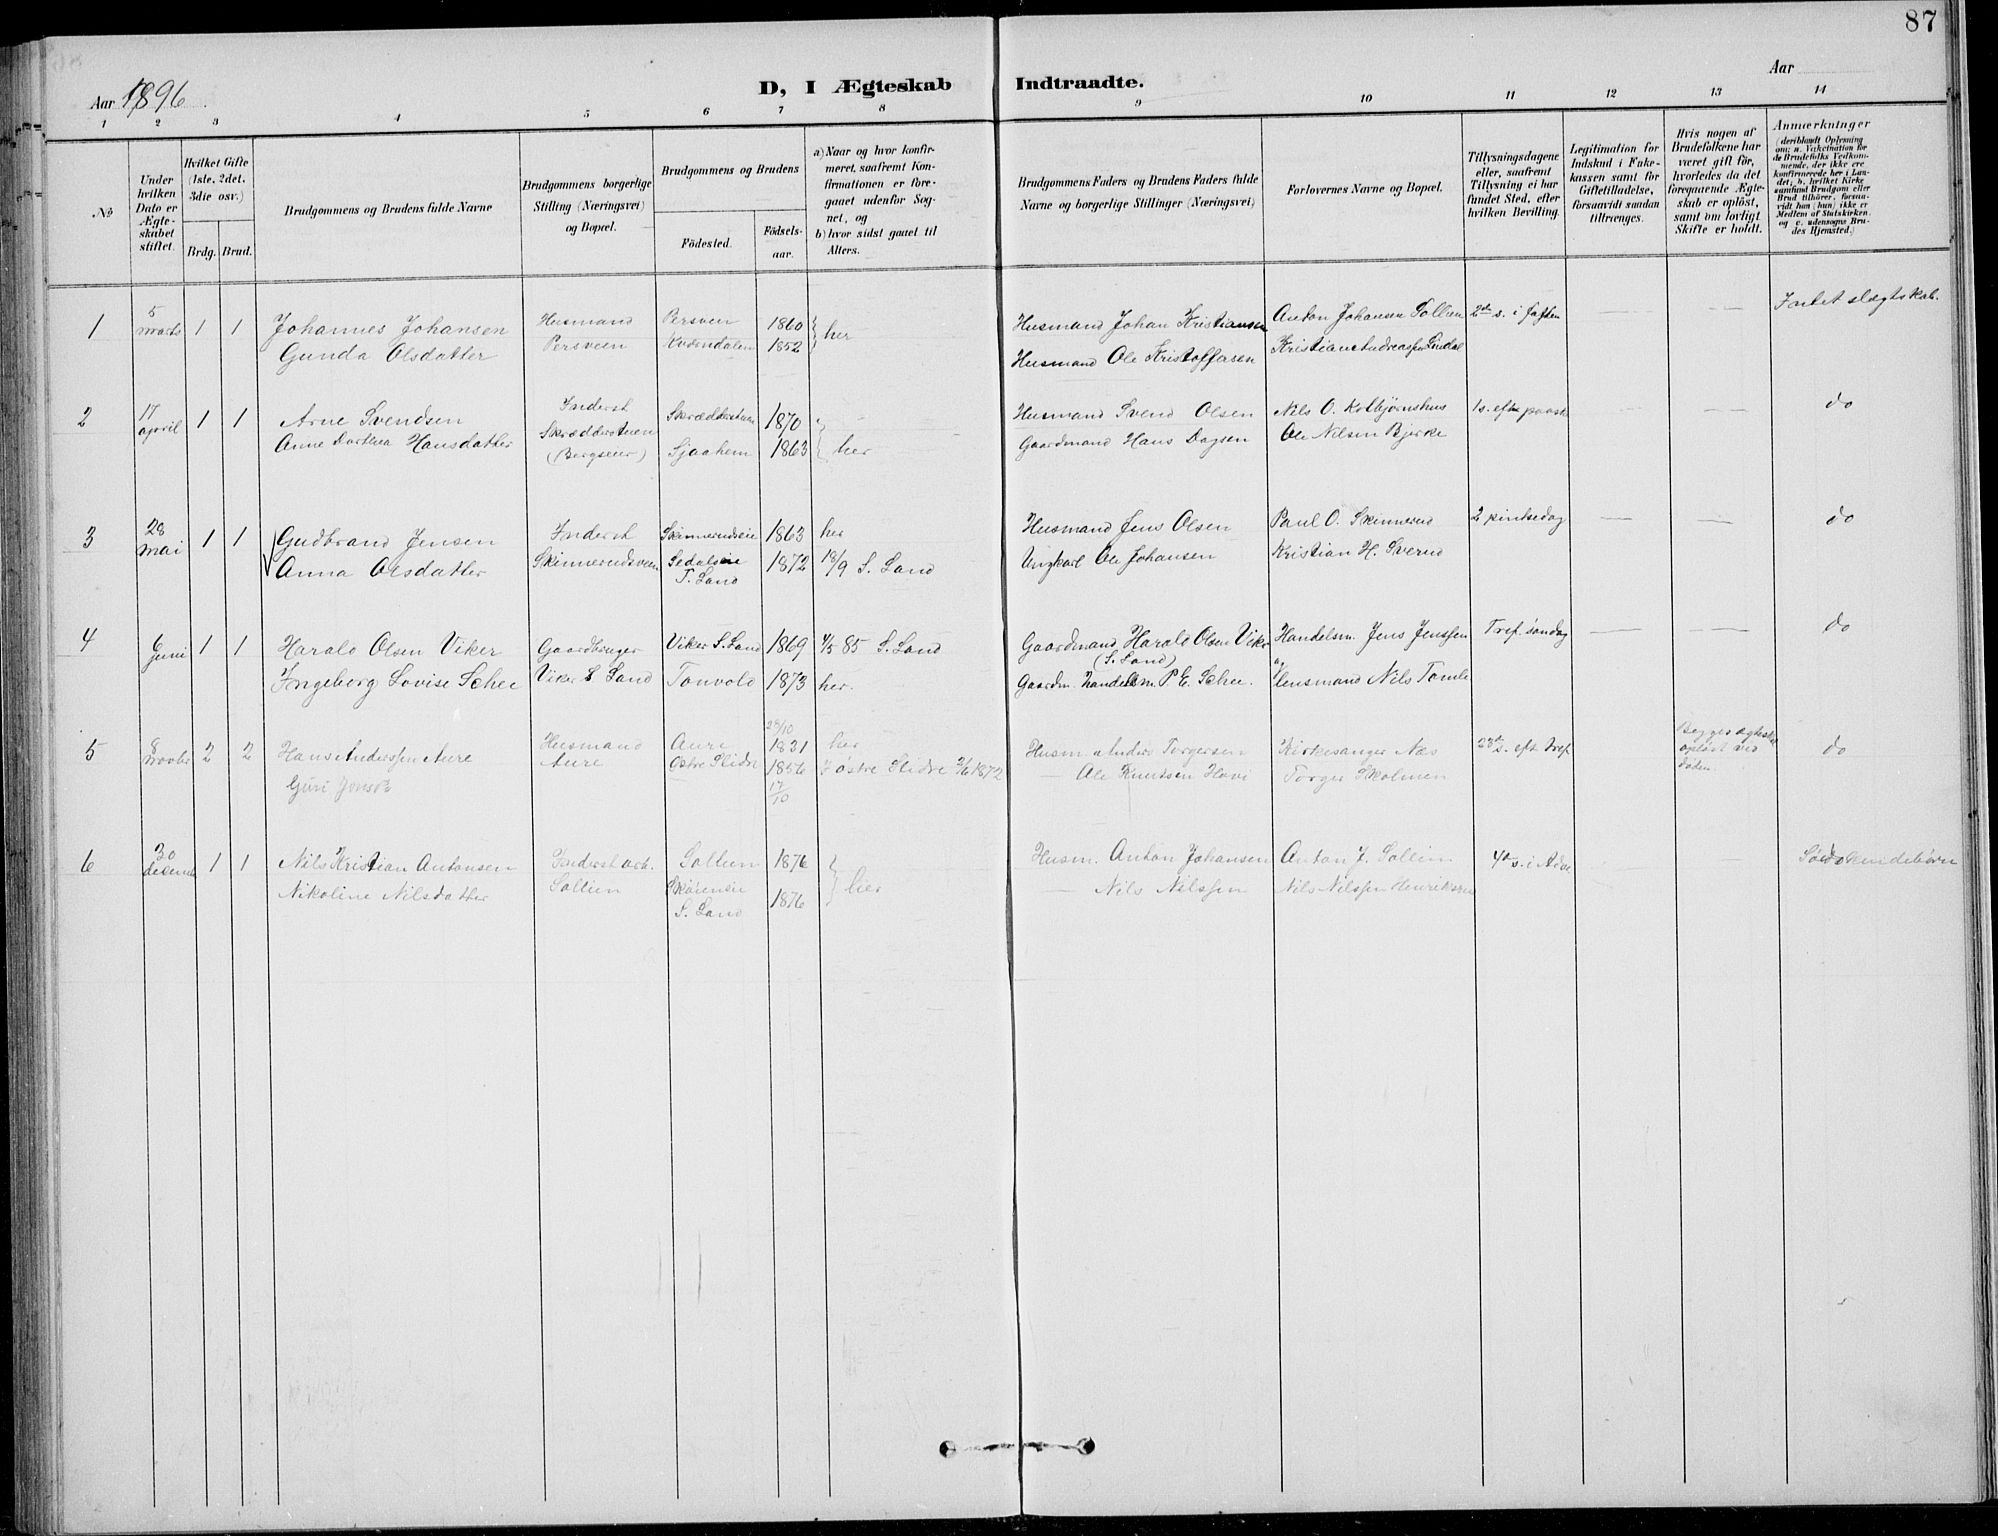 87
Aar 1896
D, I Ægteskab Indtraadte.
Aar
1 2 3 4 5 6 7 8 9 10 11 12 13 14
No
Under hvilken Dato er Ægteskabet stiftet.
Hvilket Gifte (1ste, 2det, 3die osv.)
Brdg. Brud.
Brudgommens og Brudens fulde Navne
Brudgommens borgerlige Stilling (Næringsvei) og Bopæl.
Brudgommens og Brudens
Födested. Födsels-aar.
a) Naar og hvor konfirmeret, saafremt Konfirmationen er foregaaet udenfor Sognet, og
b) hvor sidst gaaet til Alters.
Brudgommens Faders og Brudens Faders fulde Navne og borgerlige Stillinger (Næringsvei)
Forlovernes Navne og Bopæl.
Tillysningsdagene eller, saafremt Tillysning ei har fundet Sted, efter hvilken Bevilling.
Legitimation for Indskud i Enkekassen samt for Giftetilladelse, forsaavidt saadan tiltrænges.
Hvis nogen af Brudefolkene har været gift för, hvorledes da det foregaaende Ægteskab er oplöst, samt om lovligt Skifte er holdt.
Anmærkninger (deriblandt Oplysning om: a. Vakcination for de Brudefolks Vedkommende, der ikke ere konfirmerede her i Landet, b. hvilket Kirkesamfund Brudgom eller Brud tilhörer, forsaavidt han (hun) ikke er Medlem af Statskirken og c. udensogns Brudes Hjemsted.)
1 5 marts 1 1 Johannes Johansen Husmand Persveen 1860 her Husmand Johan Kristiansen Anton Johansen Sollien 2den s. i faften — — Intet slægtskab.
Gunda Olsdatter Persveen 1852 Husmand Ole Kristoffersen
2 17 april 1 1 Arne Svendsen Inderst 1870 Husmand Svend Olsen Nils O. Kolbjørnshus 1 s. efter paaske — — do
Anne Dorthea Hansdatter (Bergseier) Sjaahem 1863 her Gaardmand Hans Dagsen Ole Nilsen Bjerke
3 28 mai 1 1 Gudbrand Jensen Inderst Skinnerudseie 1863 her Husmand Jens Olsen Paul O. Skinnerud 2 pintsedag — — do
Anna Olsdatter Skinnerudsveen T. Land 1872 18/9 S. Land Ungkarl Ole Johansen Kristian H. Sverud
4 6 Juni 1 1 Harald Olsen Viker Gaardbruger Viker S. Land 1869 4/5 85 S. Land Gaardmand Harald Olsen Viker (S. Land) Handelsm. Jens Jenssen Tref. söndag — — do
Ingeborg Lovise Schee Viker S Land Tonvold 1873 her. Gaardm. handelsm. P. E. Schee. og lensmand Nils Tomle
5 8 novbr 2 2 Hans Anderssen Aure Husmand Aure 28/10 1831 her Husm. Anders Torgersen Kirkesanger Næs 23de s. eft. tref. Begges ægteskab opløst ved døden. do
Guri Jonsd. Aure Østre Slidre 1856 17/10 Østre Slidre 1872 — Ole Knudsen Hovi Torger Skolmen
6 30 decemb 1 1 Nils Kristian Antonsen Inderst arb. Sollien 1876 her Husm. Anton Johansen Anton J. Sollien 4de s. i Adv. — — Södskendebörn
Nikoline Nilsdatter Sollien S. Land 1876 — Nils Nilssen Nils Nilssen Henriksen